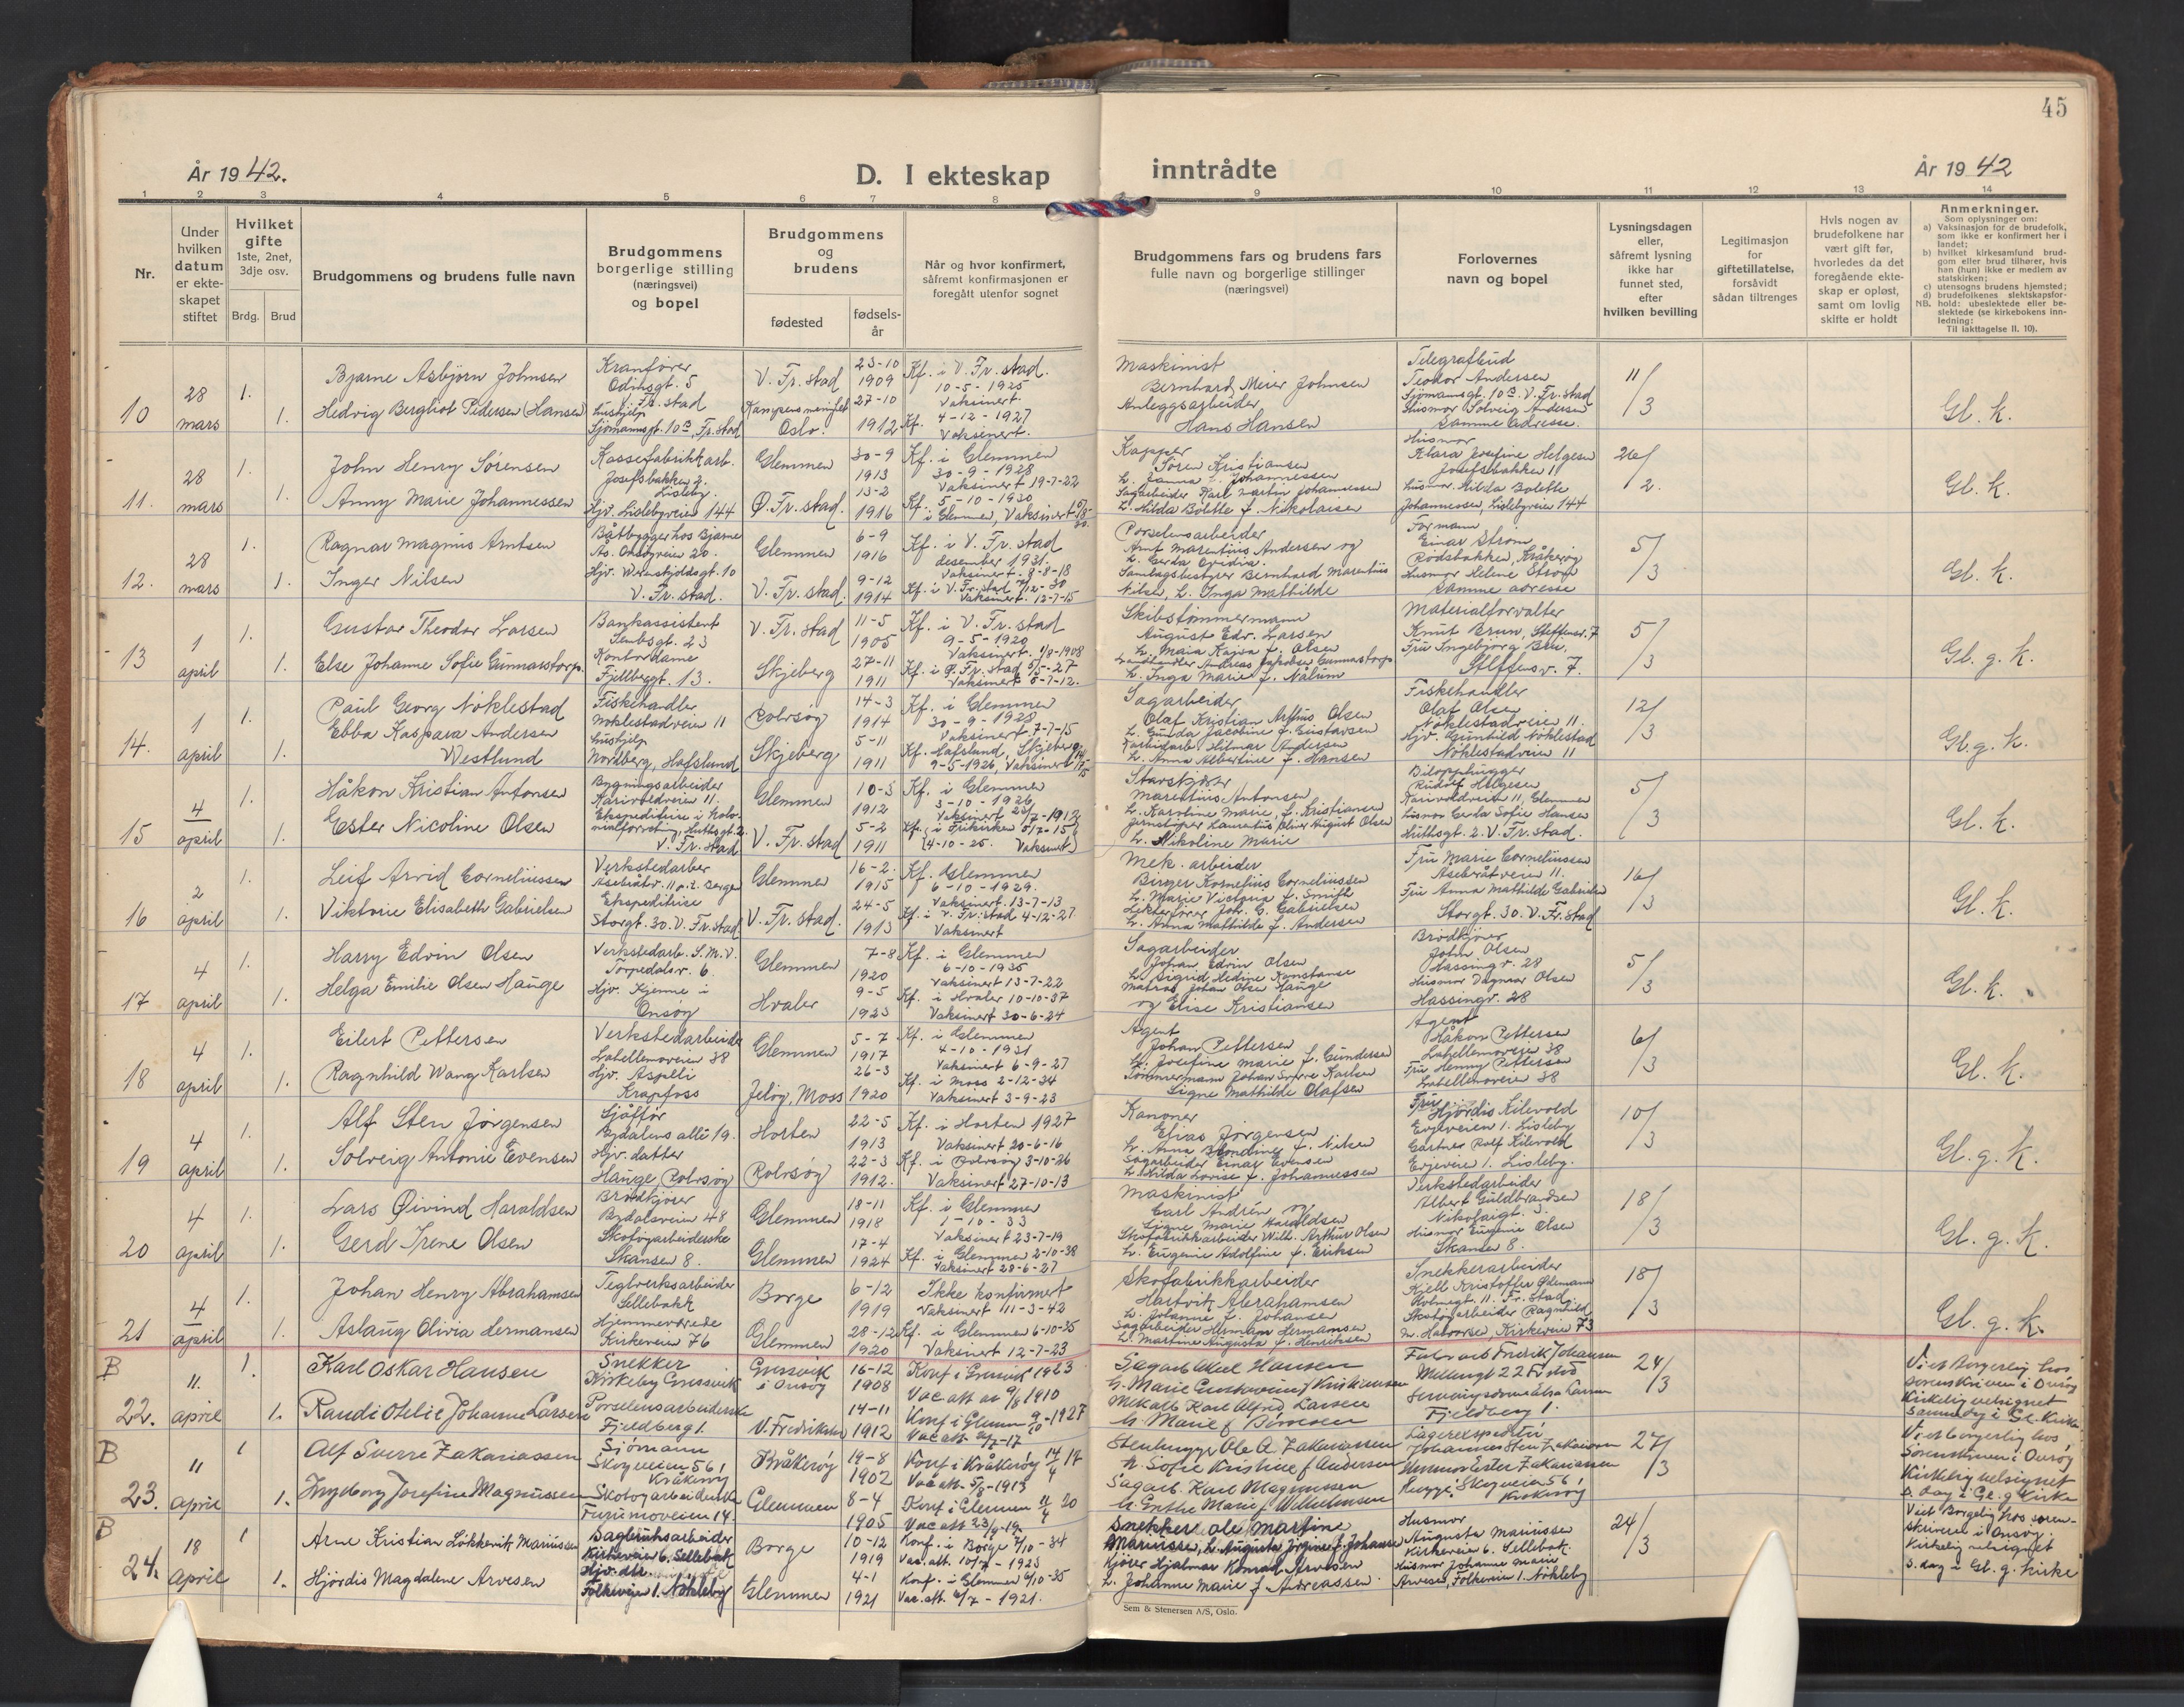 45
År 1942.
D. I ekteskap
inntrådte
År 1942
1 2 3 4 5 6 7 8 9 10 11 12 13 14
Nr.
Under hvilken datum er ekteskapet stiftet
Hvilket gifte 1ste, 2net, 3dje osv.
Brdg. Brud
Brudgommens og brudens fulle navn
Brudgommens borgerlige stilling (næringsvei) og bopel
Brudgommens og brudens
fødested
fødsels-år
Når og hvor konfirmert, såfremt konfirmasjonen er foregått utenfor sognet
Brudgommens fars og brudens fars fulle navn og borgerlige stillinger (næringsvei)
Forlovernes navn og bopel
Lysningsdagen eller, såfremt lysning ikke har funnet sted, efter hvilken bevilling
Legitimasjon for giftetillatelse, forsåvidt sådan tiltrenges
Hvis nogen av brudefolkene har vært gift før, hvorledes da det foregående ekteskap er opløst, samt om lovlig skifte er holdt
Anmerkninger.
Som oplysninger om:
a) Vaksinasjon for de brudefolk, som ikke er konfirmert her i landet;
b) hvilket kirkesamfund brudgom eller brud tilhører, hvis han (hun) ikke er medlem av statskirken;
c) utensogns brudens hjemsted;
d) brudefolkenes slektskapsforhold: ubeslektede eller beslektede (se kirkebokens innledning:
NB.
Til iakttagelse II. 10).
10 28 mars 1. 1.
Bjarne Asbjørn Johnsen
Hedvig Bergliot Pedersen (Hansen)
Kranfører
Odinsgt. 5
V. Fr. stad
Hushjelp
Sjømannsgt. 10 B, Fr. stad
V. Fr. stad 23-10 1909
Oslo. 27-10 1912
Kf. i V. Fr. stad.
10-5-1925
Vaksinert.
Kf. 4-12-1927
Vaksinert.
Maskinist
Bernhard Meier Johnsen
Anleggsarbeider
Hans Hansen
Telegrafbud
Teodor Andersen
Sjømannsgt. 10 B. V. Fr. stad
Husmor Solveig Andersen
Samme adresse.
11/3
Gl. K.
11. 28 mars 1. 1.
John Henry Sørensen
Anny Marie Johannessen
Kassefabrikkarb.
Josefsbakken 2.
Lisleby.
Hjv. Lislebyveien 144
Glemmen 30-9 1913
Ø. Fr. stad. 13-2 1916
Kf. i Glemmen
30-9-1928
Vaksinert 19-7-22
Kf. 5-10-1930
i Glemmen, Vaksinert
Kapper
Søren Kristiansen
Sagarbeider Karl Martin Johannessen
h. Hilda Bolette f. Nikolaisen
Husmor
Klara Josefine Helgesen
Josefsbakken 11
Husmor. Hilda Bolette
Johannessen, Lislebyveien 144
26/2.
Gl. K.
12. 28 mars 1. 1.
Ragnar Magnus Arntsen
Inger Nilsen
Båtbygger hos Bjarne
As. Onsøyveien 20.
Hjv. Wernskjoldsgt. 10
V. Fr. stad.
Glemmen 6-9 1916
V. Fr. stad. 9-12 1914
Kf. i V. Fr. stad
desember 1931.
Vaksinert. 9-8-18
Kf. i V. Fr. stad 7/12-30
Vaksinert. 12-7-15
Porselensarbeider
Arnt Marentius Andersen og
h. Gerda Ovidia.
Samlagsbestyrer Bernhard Marentius
Nilsen, h. Inga Mathilde
Formann
Einar Strøm
Rødsbakken, Kråkerøy
Husmor Helene Strøm
Samme adresse
5/3
Gl. K.
13 1 april 1. 1.
Gustav Theodor Larsen
Else Johanne Sofie Gunnarstorp.
Bankassistent
Sembsgt. 23
Kontordame
Fjellbergt. 13.
V. Fr. stad 11-5 1905
Skjeberg 27-11 1911
Kf. i V. Fr. stad
9-5-1920
Vaksinert. 1/8-1908
Kf. i Ø. Fr. stad 5/5-27
Vaksinert 5-7-12.
Skibstømmermann
August Edv. Larsen
h. Maia Kajsa f. Olsen
Landhandler Andreas Jakobsen Gunnarstorp
h. Inga Marie f. Nålum
Materialforvalter
Knut Brun, Steffensv. 7
Fru Ingebjørg Brun,
Steffensv. 7.
5/3
Gl. g. K.
14. 1 april 1. 1.
Paul Georg Nøklestad
Ebba Kaspara Andersen
Westlund
Fiskehandler
Nøklestadveien 11
Hushjelp
Nordberg, Hafslund
Rolvsøy 14-3 1914
Skjeberg 5-11 1911
Kf. i Glemmen
30-9-1928
Vaksinert 7-7-15
Kf. Hafslund, Skjeberg
9-5-1926, Vaksinert
Sagarbeider
Olaf Kristian Arthus Olsen
h. Gunda Jacobine f. Gustavsen
Karbidarb. Hilmar Andersen
h. Anna Albertine f. Hansen
Fiskehandler
Olaf Olsen
Nøklestadveien 11.
Hjv. Gunhild Nøklestad
Nøklestadveien 11
12/3
Gl. g. K.
15 4 april 1. 1.
Håkon Kristian Antonsen
Ester Nicoline Olsen
Bygningsarbeider
Karivoldveien 11.
Ekspeditrise i kolonialforretning, Huthsgt. 2.
V. Fr. stad
Glemmen 10-3 1912
V. Fr. stad 5-2 1911
Kf. i Glemmen
3-10-1926
Vaksinert 23/7-1912
Kf. i Frikirken 5/7-15
(4-10-25. Vaksinert)
Marentius Antonsen
h. Karoline Marie, f. Kristiansen
Jernstøper Laurentius Oliver August Olsen
h. Nikoline Marie
Bilopphugger
Rudolf Helgesen
Karivoldveien 11, Glemmen
Husmor Gerda Sofie Hansen
Huthsgt. 2. V. Fr. stad.
5/3
Gl. K.
16 2 april 1. 1.
Leif Arvid Corneliussen
Viktorie Elisabeth Gabrielsen
Verkstedarbeider
Ekspeditrise
Storgt. 30. V. Fr. stad
Glemmen 16-2. 1915
V. Fr. stad. 24-5 1913
Kf. Glemmen
6-10-1929.
Vaksinert. 13-7-13
Kf. i V. Fr. stad 4-12-27.
Vaksinert
Mek. arbeider
Birger Kornelius Corneliussen
h. Marie Victoria f. Smith
Lekterfører Joh. G. Gabrielsen
h. Anna Mathilde f. Andersen
Fru Marie Corneliussen
Asebråtveien 11.
Fru Anna Mathilde Gabrielsen
Storgt. 30. V. Fr. stad
16/3
Gl. K.
17 4 april 1. 1.
Harry Edvin Olsen
Helga Emilie Olsen Hauge
Verkstedarb. S.M.V.
Torpedalsv. 6.
Hjv. Kjenne i
Onsøy
Glemmen 7-8 1920
Hvaler 9-5 1923
Kf. i Glemmen
6-10-1935
Vaksinert 13-7-22
Kf. i Hvaler 10-10-37
Vaksinert 30-6-24
Sagarbeider
Johan Edvin Olsen
h. Sigrid Hedine Konstanse
Matros Johan Olsen Hauge
og Elise Kristiansen
Brødkjører
John Olsen
Hassingv. 28
Husmor Dagmar Olsen
Hassingv. 28
5/3
Gl. K.
18 4 april 1. 1.
Eilert Pettersen
Ragnhild Wang Karlsen
Verkstedarbeider
Labellemoveien 38
Hjv. Aspeli
Krapfoss
Glemmen 5-7 1917
Jeløy, Moss 26-3 1920
Kf. i Glemmen
4-10-1931
Vaksinert 6-9-27
Kf. i Moss 2-12-34
Vaksinert 3-9-23
Agent
Johan Pettersen
h. Josefine Marie f. Gundersen
Tømmermann Johan Sverre Karlsen
Signe Mathilde Olafsen
Agent
Håkon Pettersen
Labellemoveien 38
Fru Henny Pettersen
Labellemoveien 38
6/3
Gl. K.
19 4 april 1. 1.
Alf Sten Jørgensen
Solveig Antonie Evensen
Sjåffør
Bydalens allé 19.
Hjv. datter
Hauge, Rolvsøy
Horten 22-5 1913
Rolvsøy 22-3 1912.
Kf. i Horten 1927
Vaksinert 20-6-16
Kf. i Rolvsøy 3-10-26
Vaksinert 27-10-13
Kanoner
Elias Jørgensen
h. Anna Blondine f. Nilsen
Sagarbeider Einar Evensen
h. Hilda Lovise f. Johannessen
Fru
Hjørdis Kilevold
Evjeveien 1. Lisleby
Gartner Rolf Kilevold
Evjeveien 1. Lisleby.
10/3
Gl. g. K.
20 4 april 1. 1.
Lars Øivind Haraldsen
Gerd Irene Olsen
Brødkjører
Bydalsveien 48
Skotøyarbeiderske
Skansen 8.
Glemmen 18-11 1918
Glemmen 17-4 1924
Kf. i Glemmen
1-10-33
Vaksinert 23-7-19
Kf. i Glemmen 2-10-38
Vaksinert 28-6-27
Maskinist
Carl Andrén og
Signe Marie Haraldsen
Skofabrikkarbeider Wilh. Arthur Olsen
h. Eugenie Adolfine f. Eriksen
Verkstedarbeider
Albert Guldbrandsen
Nikolaigt. 3.
Husmor Eugenie Olsen
Skansen 8.
18/3
Gl. g. K.
21 4 april 1. 1.
Johan Henry Abrahamsen
Aslaug Olivia Hermansen
Teglverksarbeider
Sellebakk
Hjemmeværende
Kirkeveien 76
Borge 6-12 1919
Glemmen 28-12 1920
Ikke konfirmert
Vaksinert 11-3-42
Kf. i Glemmen 6-10-35
Vaksinert 12-7-23
Skofabrikkarbeider
Hartvik Abrahamsen
h. Johanne f. Johansen
Sagarbeider Herman Hermansen
h. Martine Augusta f. Henriksen
Snekkerarbeider
Kjell Kristoffer Ødemann
Holmegt. 11. Fr. stad
Skotøyarbeider Ragnhild
m. Halvorsen, Kirkeveien 73
18/3
Gl. g. K.
B 22. 11. april 1. 1.
Karl Oskar Hansen
Randi Otelie Johanne Larsen
Snekker
Kirkeby Gressvik
Porselensarbeiderske
Fjeldberg 1.
Gressvik i Onsøy 16-12 1908
V. Fredrikstad 14-11 1912
Konf i Gressvik 1923
Vac att av 9/8 1910
Konf i Glemmen 9/10-1927
Vac att 21/7-17
Sagarb Axel Hansen
h. Marie Gustavine f Kristiansen
Mek arb Karl Alfred Larsen
h. Marie f Simonsen
Fabr arb Fredrik Johansen
Mellemgt 22 F.stad
Fjeldberg 1.
24/3
Viet Borgerlig hos
sorenskriveren i Onsøy
Kirkelig velsignet
samme dag i Gl. Kirke
B 23. 11 april 1 1.
Alf Sverre Zakariassen
Ingeborg Josefine Magnussen
Sjømann
Skogveien 56,
Kråkerøy
Skotøyarbeiderske
Furumoveien 14.
Kråkerøy 19-8 1902
Glemmen 8-4 1905
Konf i Kråkerøy 14/4 17
Vac att. 5/8-1913
Konf i Glemmen 11/4 20
Vac att 23/9-19.
Stenhugger Ole A Zakariassen
h. Sofie Kristine f Andersen
Sagarb. Karl Magnussen
h. Grethe Marie f Wilhelmsen
Lagerekspeditør
Johannes Sten Zakariassen
Husmor Ester Zakariassen
begge: Skogveien 56,
Kråkerøy
27/3
Viet borgerlig hos
Sorenskriveren i Onsøy
Kirkelig velsignet
s. dag i Gl. g. Kirke
B 24. 18 april 1 1.
Arne Kristian Løkkevik Mariussen
Hjørdis Magdalene Arvesen
Dagbruksarbeider
Kirkeveien 6. Sellebakk
Hjv. dtr.
Folkeveien 1. Nøkleby
Borge 10-12 1919
Glemmen 4-1 1921
Konf. i Borge 7/10-34
Vac. att. 10/7-1923
Konf. i Glemmen 6/10-35
Vac. att. 4/7-1921.
Snekker Ole Martine
Mariussen, h. Augusta Jørgine f. Johansen
Kjører Hjalmar Konrad Arvesen
h. Johanne Marie f. Andreassen.
Husmor
Augusta Mariussen
Kirkeveien 6. Sellebak.
Husmor Johanne Marie
Arvesen, Folkeveien 1. Nøkleby
24/3
Viet Borgelig hos sorenskriveren i Onsøy.
Kirkelig velsignet
s. dag i Gl. g. Kirke
Sem & Stenersen A/S, Oslo.